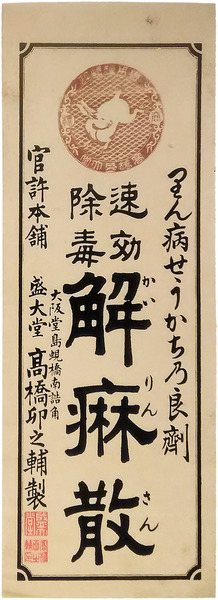 りん病せうかち乃良劑
速効
除毒
解痳散
かいりんさん
官許本舗
大阪堂島蜆橋南詰角
盛大堂 髙橋卯之輔製